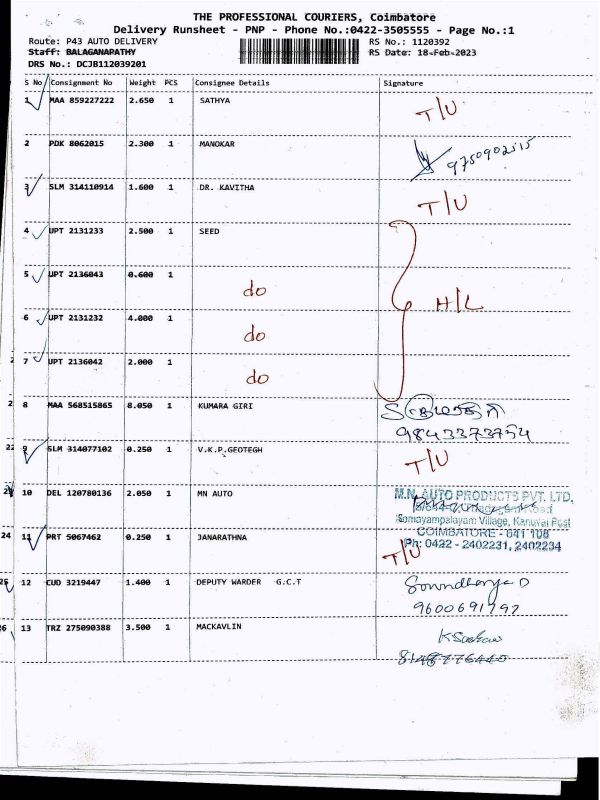 THE PROFESSIONAL COURIERS, Coimbatore
Delivery Runsheet - PNP - Phone No.:0422-3505555 - Page No.:1
Route: P43 AUTO DELIVERY RS No.: 1120392
Staff: BALAGANAPATHY RS Date: 18-Feb-2023
DRS No.: DCJB112039201
S No Consignment No Weight PCS Consignee Details Signature
1 MAA 859227222 2.650 1 SATHYA T/U
2 PDK 8062015 2.300 1 MANOKAR 9750902515
3 SLM 314110914 1.600 1 DR. KAVITHA T/U
4 UPT 2131233 2.500 1 SEED
5 UPT 2136043 0.600 1 do H/L
6 UPT 2131232 4.000 1 do
7 UPT 2136042 2.000 1 do
2 8 MAA 568515865 8.050 1 KUMARA GIRI
9843373754
22 9 SLM 314077102 0.250 1 V.K.P.GEOTEGH T/U
10 DEL 120780136 2.050 1 MN AUTO M.N. AUTO PRODUCTS PVT. LTD,
Road
Somayampalayam Village, Kanuvai Post
COIMBATORE - 641 108
24 11 PRT 5067462 0.250 1 JANARATHNA T/U Ph: 0422 - 2402231, 2402234
25 12 CUD 3219447 1.400 1 DEPUTY WARDER G.C.T Soundharya D
9600691792
26 13 TRZ 275090388 3.500 1 MACKAVLIN
8148776445